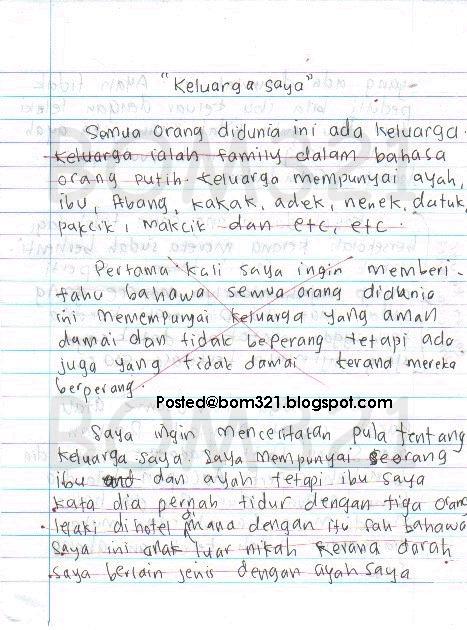 "Keluarga saya"
Semua orang didunia ini ada keluarga.
Keluarga ialah family dalam bahasa
orang putih. Keluarga mempunyai ayah,
ibu, Abang, kakak, adek, nenek, datuk,
pakcik, makcik dan etc, etc.
Pertama kali saya ingin memberi-
tahu bahawa semua orang didunia
ini memempunyai keluarga yang aman
damai dan tidak beperang tetapi ada
juga yang tidak damai kerana mereka
berperang.
Posted@bom321.blogspot.com
Saya ingin menceritakan pula tentang
keluarga saya. Saya mempunyai seorang
ibu and dan ayah tetapi ibu saya
kata dia pernah tidur dengan tiga orang
lelaki di hotel dimana dengan itu sah bahawa
saya ini anak luar nikah kerana darah
saya berlain jenis dengan ayah saya
BOM321
BOM321